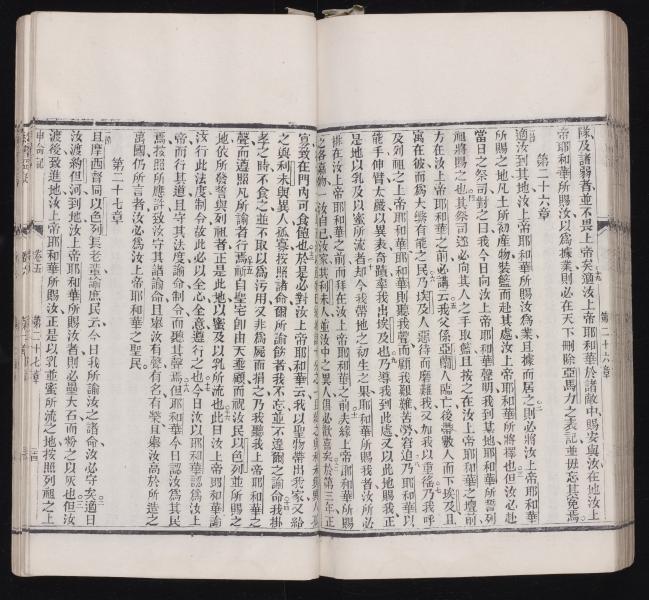 隊及諸弱者並不畏上帝矣適汝上帝耶和華於諸敵中賜安與汝在地汝上
帝耶和華所賜汝以為據業則必在天下刪除亞馬力之表記並毋忘其冤焉
第二十六章
適汝到其地汝上帝耶和華所賜汝為業且據而居之則必將汝上帝耶和華
所賜之地凡土所初產物裝籃而赴其處汝上帝耶和華所將擇也但汝必赴
當日之祭司對之曰我今日向汝上帝耶和華聲明我到某地耶和華所誓列
祖將賜之也其祭司遂必向其人之手取籃且按之在汝上帝耶和華之壇前
方在汝上帝耶和華之前必講云我父係亞蘭人臨亡後帶數人而下埃及且
寓在彼而為大盛有能之民乃埃及人惡待而磨難我又加我以重徭乃我呼
及列祖之上帝耶和華則聽我聲而顧我艱難苦勞窘迫乃耶和華以
能手伸臂太嚴以異表奇蹟牽我出埃及也乃導我到此處又以此地賜我正
是地以乳及以蜜所流者却今我帶地之初生之果耶和華所賜我者汝所必
排在汝上帝耶和華之前而拜在汝上帝耶和華之前夫緣上帝耶和華所賜
之各嘉物汝自己汝家其利未人並汝中之異人俱必歡喜矣於第三年正
寡致在門內可食飽也於是必對上帝耶和華云我以聖物帶出我家又給
之與利未與異人孤寡按照諸命爾所諭飭者我不忘並不違爾之諭命我掛
老子時不食之並不取以為污用又非為屍而捐之乃我聽我上帝耶和華之
聲而遵照凡所諭者行焉祈自聖宅卽由天垂顧而祝汝民以色列並所賜之
地依所發誓與列祖者正是此地以蜜及以乳所流也此日汝上帝耶和華諭
汝行此法度制令故此必以全心全意遵行之也今日汝以耶和華認為汝上
帝而行其道且守其法度諭命制令而聽其聲焉但耶和華今日認汝為其民
焉按照所應許致汝守其諸諭命且舉汝有聲有名有榮且舉汝高於所造之
萬國仍所言者汝必為汝上帝耶和華之聖民
第二十七章
且摩西督同以色列長老輩諭庶民云今日我所諭汝之諸命汝必守矣適日
汝渡約但河到地汝上帝耶和華所賜汝者則必壘大石而粉之以灰也但汝
渡後致進地汝上帝耶和華所賜汝正是以乳並蜜所流之地按照列祖之上
申命記
卷五
第二十七章